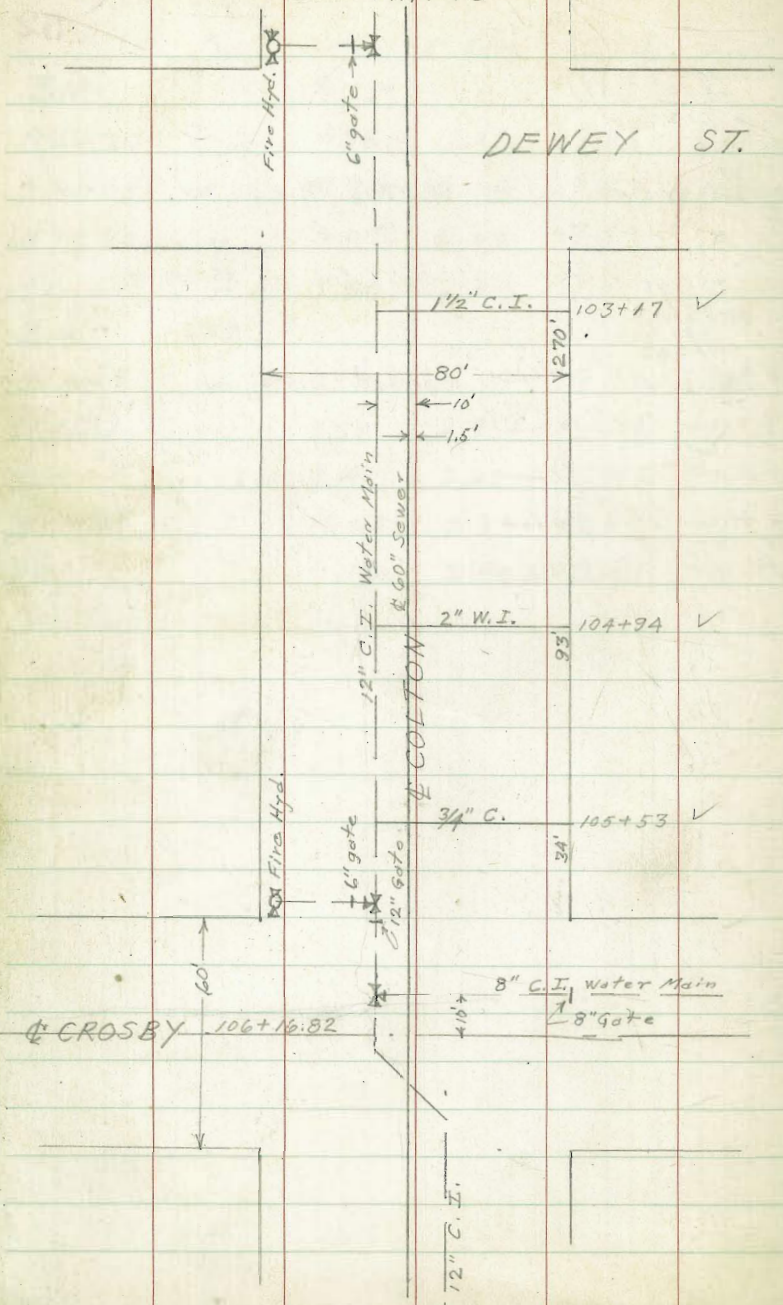 Fire Hyd.
6" gate
DEWEY ST.
1½" C.I.
103+17
270'
80'
10'
1.5'
12" C.I. Water Main
℄ 60" Sewer
2" W.I.
104+94
93'
℄ COLTON
3/4" C.
105+53
34'
Fire Hyd.
6" gate
12" Gate
60'
8" C.I. Water Main
8" Gate
10'±
℄ CROSBY 106+16.82
12" C.I.